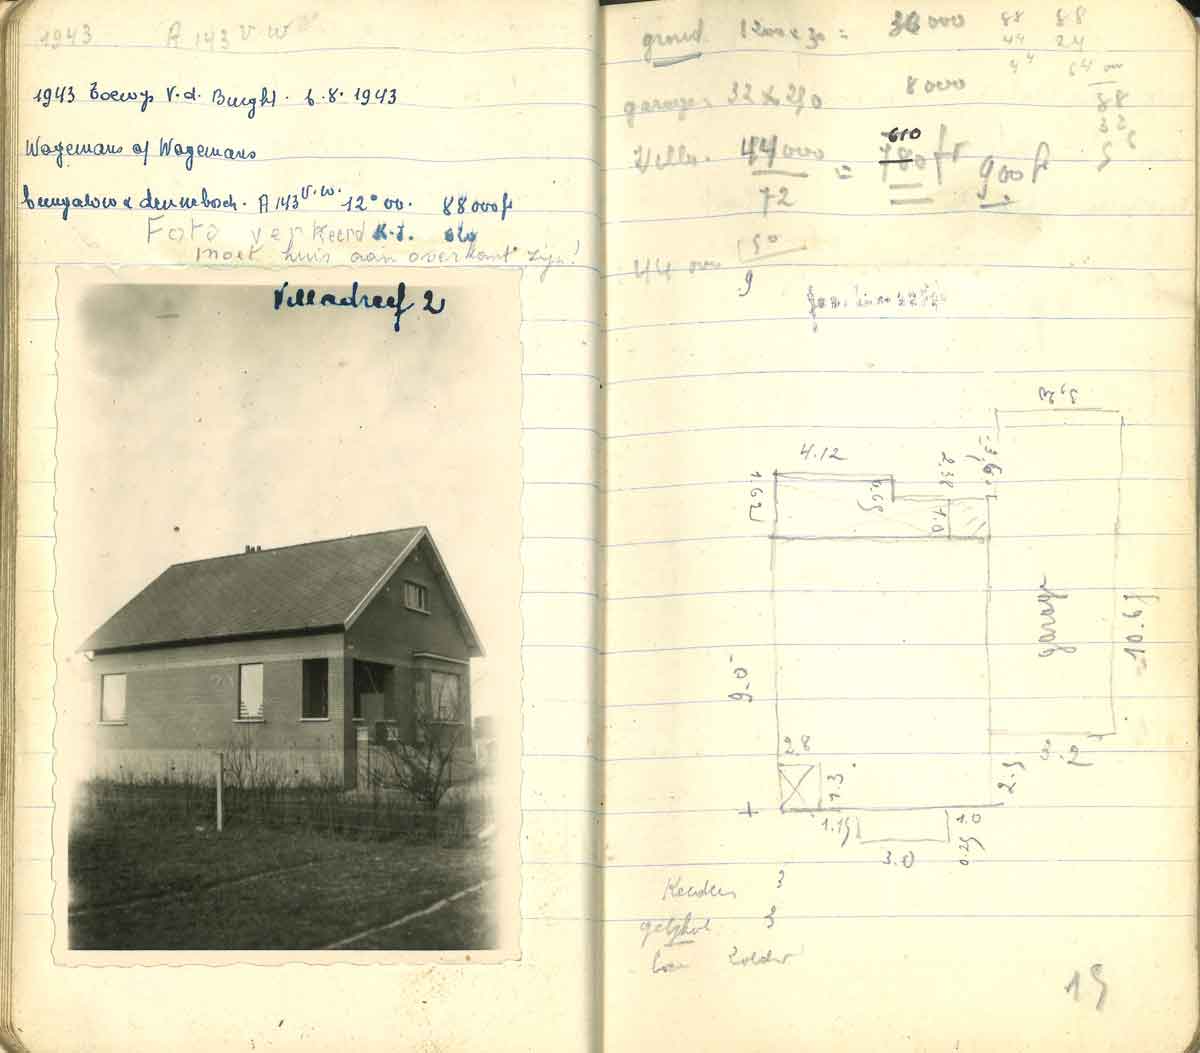 1943 A 143 V W
1943 Toewijz V.d. Burght. 6.8.1943
Wagemans of Wagemans
bungalow & dennebosch. A 143 V.W. 12ᵃ 00. 88000 fr
Foto verkeerd
moet huis aan overkant zijn!
Villadreef 2
grond 1200 x 30 = 36000
88 88
44 24
44 64
garage 32 x 250 8000
88
32
Villa. 44000 = 780 fr 900 fr
610
72
50
44 000
9
5.20
4.12
1.62
0.65
2.38
1.0
garage
10.65
9.0
2.8
1.3
3.2
2.5
1.15
1.0
3.0
0.25
Keuken 3
gelijkvl 3
zolder
15